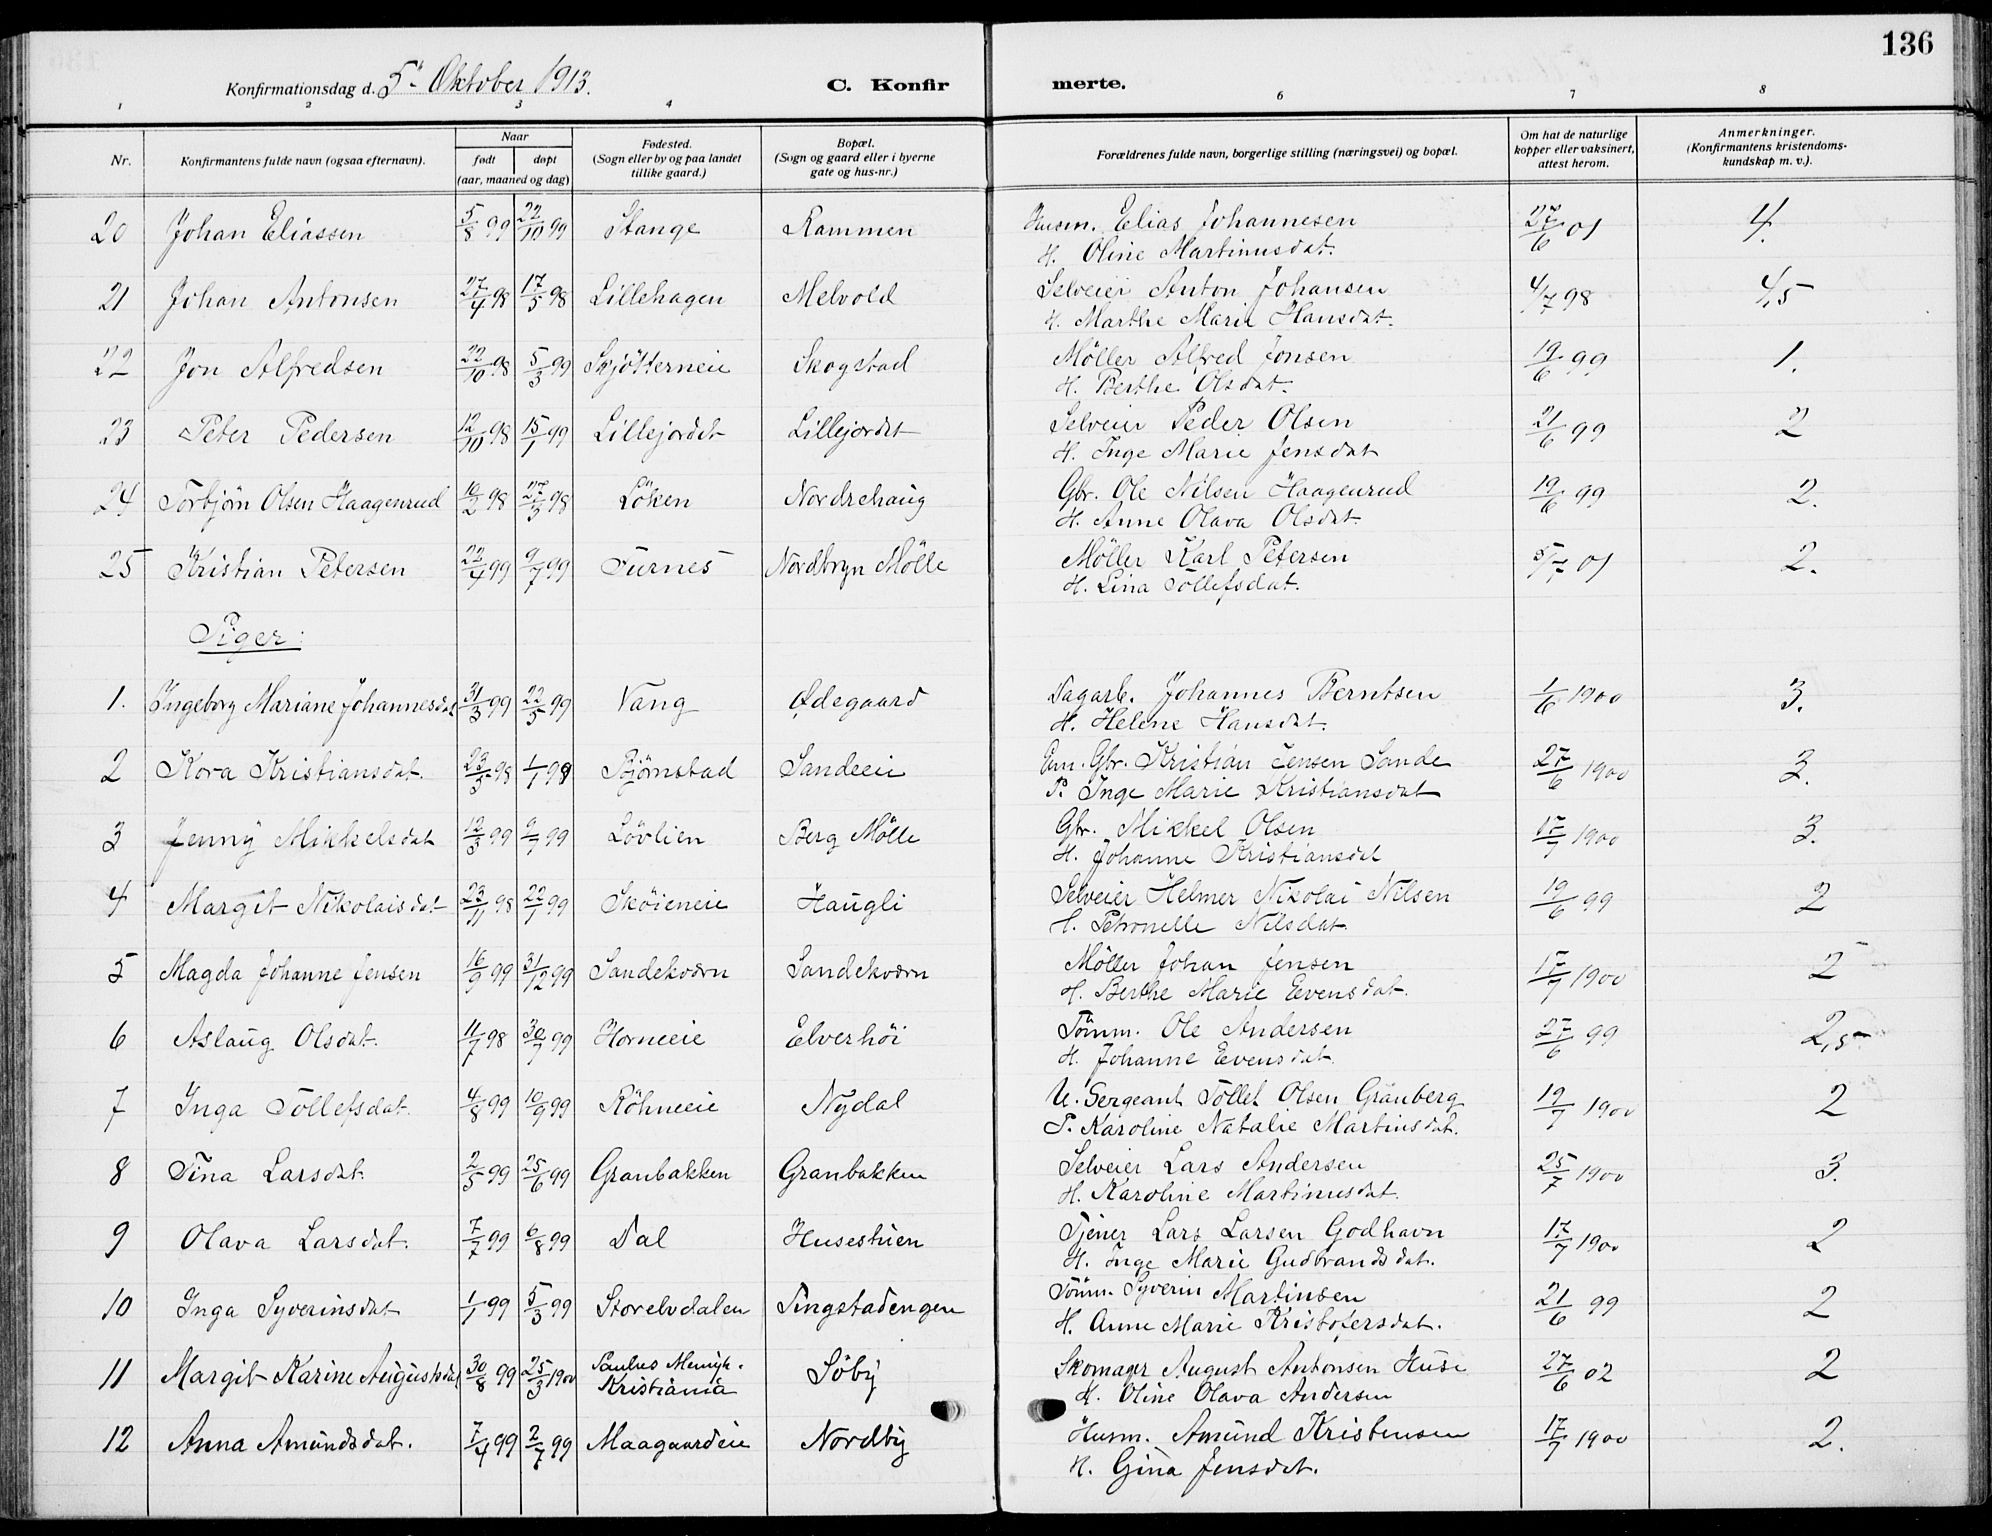 136
Konfirmationsdag d. 5' Oktober 1913. C. Konfirmerte.
1 2 3 4 6 7 8
Nr. Konfirmantens fulde navn (ogsaa efternavn). Naar født døpt (aar, maaned og dag) Fødested. (Sogn eller by og paa landet tillike gaard.) Bopæl. (Sogn og gaard eller i byerne gate og hus-nr.) Forældrenes fulde navn, borgerlige stilling (næringsvei) og bopæl. Om hat de naturlige kopper eller vaksinert, attest herom. Anmerkninger. (Konfirmantens kristendomskundskap m. v.).
20 Johan Eliassen 5/8 99 22/10 99 Stange Rammen Husm. Elias Johannesen 27/6 01 4.
H. Oline Martinusdat.
21 Johan Antonsen 27/4 98 17/5 98 Lillehagen Melvold Selveier Anton Johansen 4/7 98 4,5
H. Marthe Marie Hansdat.
22 Jon Alfredsen 22/10 98 5/3 99 Skjötterneie Skogstad Möller Alfred Jonsen 19/6 99 1.
H. Berthe Olsdat.
23 Peter Pedersen 12/10 98 15/1 99 Lillejordet Lillejordet Selveier Peder Olsen 21/6 99 2
H. Inge Marie Jensdat
24 Torbjörn Olsen Haagenrud 10/2 98 27/3 98 Löken Nordrehaug Gbr. Ole Nilsen Haagenrud 19/6 99 2.
H. Anne Olava Olsdat.
25 Kristian Petersen 22/4 99 9/7 99 Furnes Nordbryn Mölle Möller Karl Petersen 5/7 01 2.
H. Lina Tollefsdat.
Piger:
1. Ingeborg Mariane Johannesdat 31/3 99 22/5 99 Vang Ødegaard Dagarb. Johannes Berntsen 1/6 1900 3.
H. Helene Hansdat.
2 Kora Kristiansdat. 23/5 98 1/1 99 Björnstad Sandeeie Gbr. Kristian Jensen Sande 27/6 1900 3.
P. Inge Marie Kristiansdat
3 Jenny Mikkelsdat 12/3 99 9/7 99 Lövlien Berg Mölle Gbr. Mikkel Olsen 17/7 1900 3.
H. Johanne Kristiansdat
4 Margit Nikolaisdat 23/11 98 22/1 99 Sköieneie Haugli Selveier Helmer Nikolai Nilsen 19/6 99 2
H. Petronelle Nilsdat.
5 Magda Johanne Jensen 16/9 99 31/12 99 Sandekværn Sandekværn Möller Johan Jensen 17/7 1900 2
H. Berthe Marie Evensdat.
6 Aslaug Olsdat. 11/7 98 30/7 99 Horneeie Elverhöi Tömm. Ole Andersen 27/6 99 2,5
H. Johanne Evensdat.
7 Inga Tollefsdat. 4/8 99 10/9 99 Röhneeie Nydal U. Sergeant Tollef Olsen Granberg 19/7 1900 2
P. Karoline Natalie Martinsdat.
8 Tina Larsdat. 2/5 99 25/6 99 Granbakken Granbakken Selveier Lars Andersen 25/7 1900 3.
H. Karoline Martinusdat.
9 Olava Larsdat. 7/7 99 6/8 99 Dal Husestuen Tjener Lars Larsen Godhavn 17/7 1900 2
H. Inge Marie Gudbrandsdat.
10 Inga Syverinsdat 1/1 99 5/3 99 Storelvdalen Tingstadengen Tömm. Syverin Martinsen 21/6 99 2
H. Anne Marie Kristofersdat.
11 Margit Karine Augustsdat 30/8 99 25/3 1900 Paulus Menigh. Kristiania Söby Skomager August Antonsen Huse 27/6 02 2
H. Oline Olava Andersen
12 Anna Amundsdat. 7/4 99 2/7 99 Maagaardeie Nordby Husm. Amund Kristensen 17/7 1900 2.
H. Gina Jensdat.